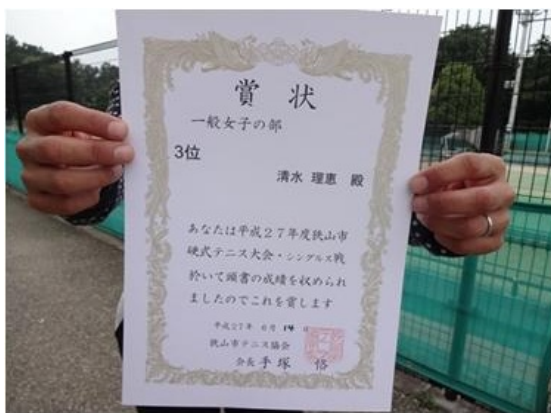 賞状
一般女子の部
3位
清水 理恵 殿
あなたは平成27年度狭山市
硬式テニス大会・シングルス戦
於いて頭書の成績を収められ
ましたのでこれを賞します
平成27年 6月 14日
狭山市テニス協会
会長 手塚 悟